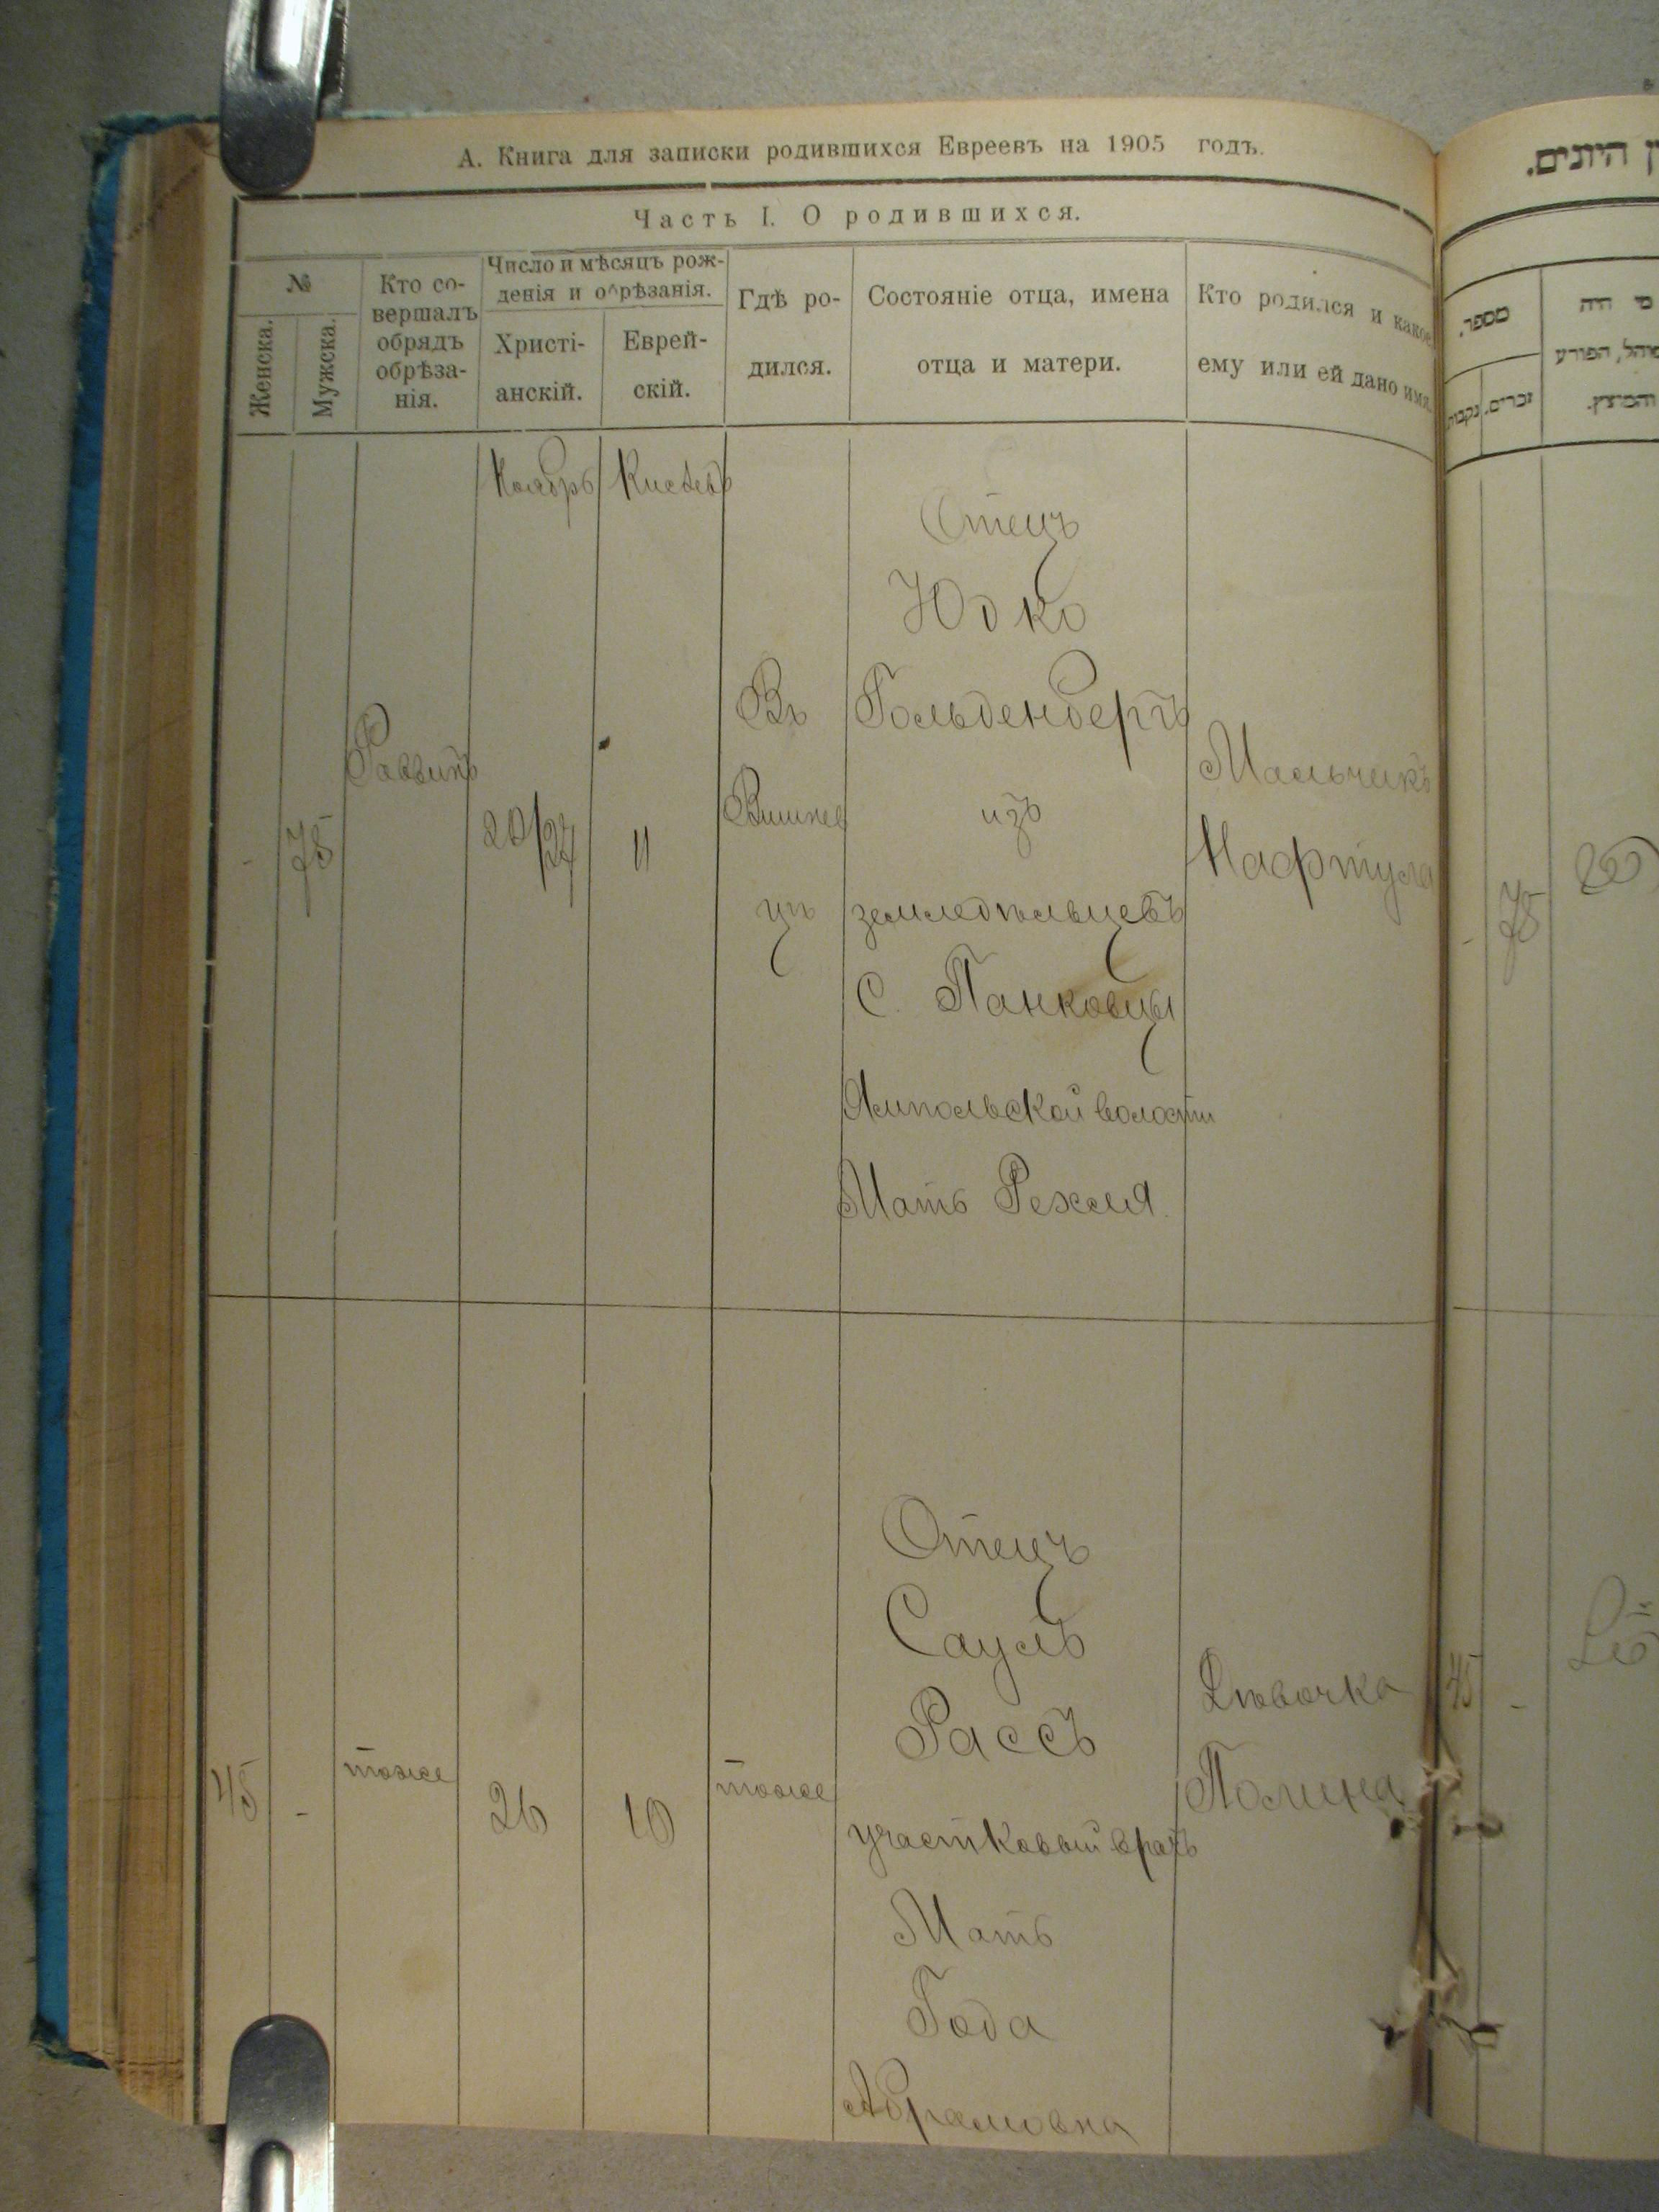 А. Книга для записки родившихся Евреевъ на 1905 годъ.
Часть I. О родившихся.
№
Женска.
Мужска.
Кто со-
вершалъ
обрядъ
обрѣза-
нія.
Число и мѣсяцъ рож-
денія и обрѣзанія.
Христі-
анскій.
Еврей-
скій.
Гдѣ ро-
дился.
Состояніе отца, имена
отца и матери.
Кто родился и какое
ему или ей дано имя.
-
75
Раввинъ
Ноябрь
20/27
Кислевъ
11
Въ
Вишнев
цѣ
Отецъ
Юдко
Гольденбергъ
изъ
земледѣльцевъ
С. Панковцы
Ямпольской волости
Мать Рехля
Мальчикъ
Нафтула
45
-
тоже
26
10
тоже
Отецъ
Сауль
Рассъ
участковый врачъ
Мать
Года
Абрамовна
Дѣвочка
Полина
היונים.
מספר.
זכרים.
מי היה
והמוצץ.
-
75
45
-